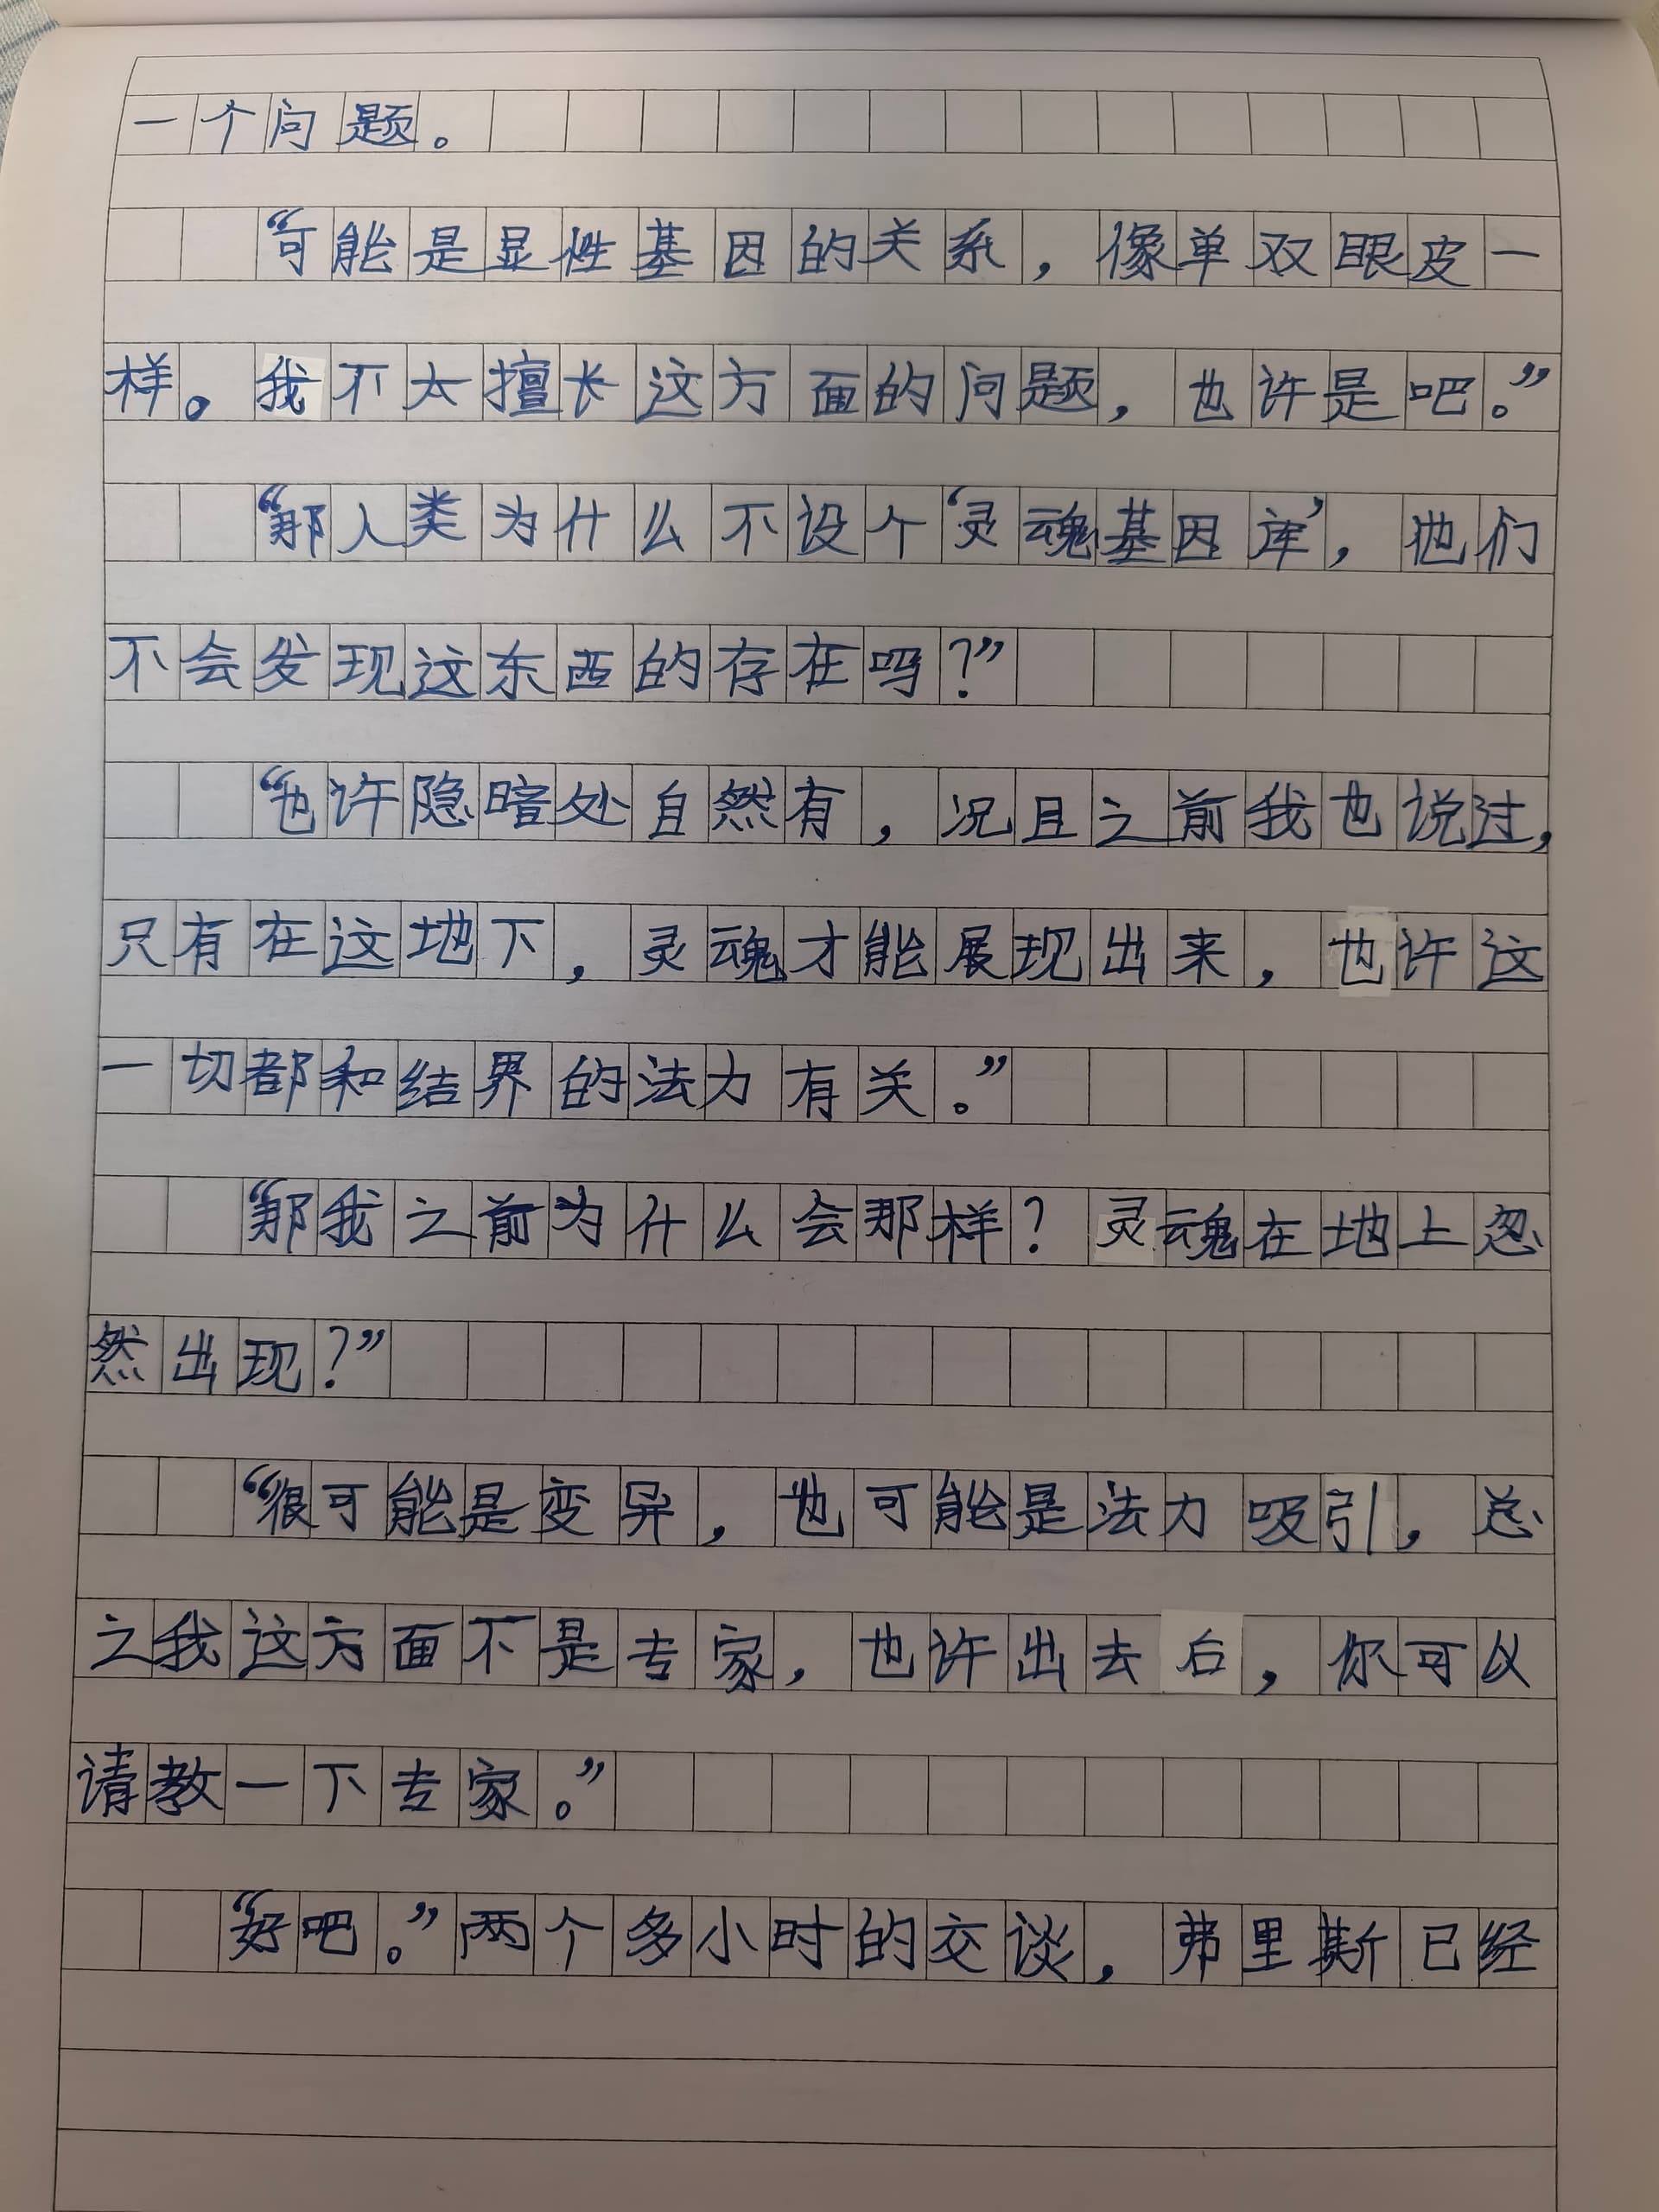 一个问题。
“可能是显性基因的关系，像单双眼皮一
样。我不太擅长这方面的问题，也许是吧。”
“那人类为什么不设个‘灵魂基因库’，他们
不会发现这东西的存在吗？”
“也许隐暗处自然有，况且之前我也说过，
只有在这地下，灵魂才能展现出来，也许这
一切都和结界的法力有关。”
“那我之前为什么会那样？灵魂在地上忽
然出现？”
“很可能是变异，也可能是法力吸引，总
之我这方面不是专家，也许出去后，你可以
请教一下专家。”
“好吧。”两个多小时的交谈，弗里斯已经